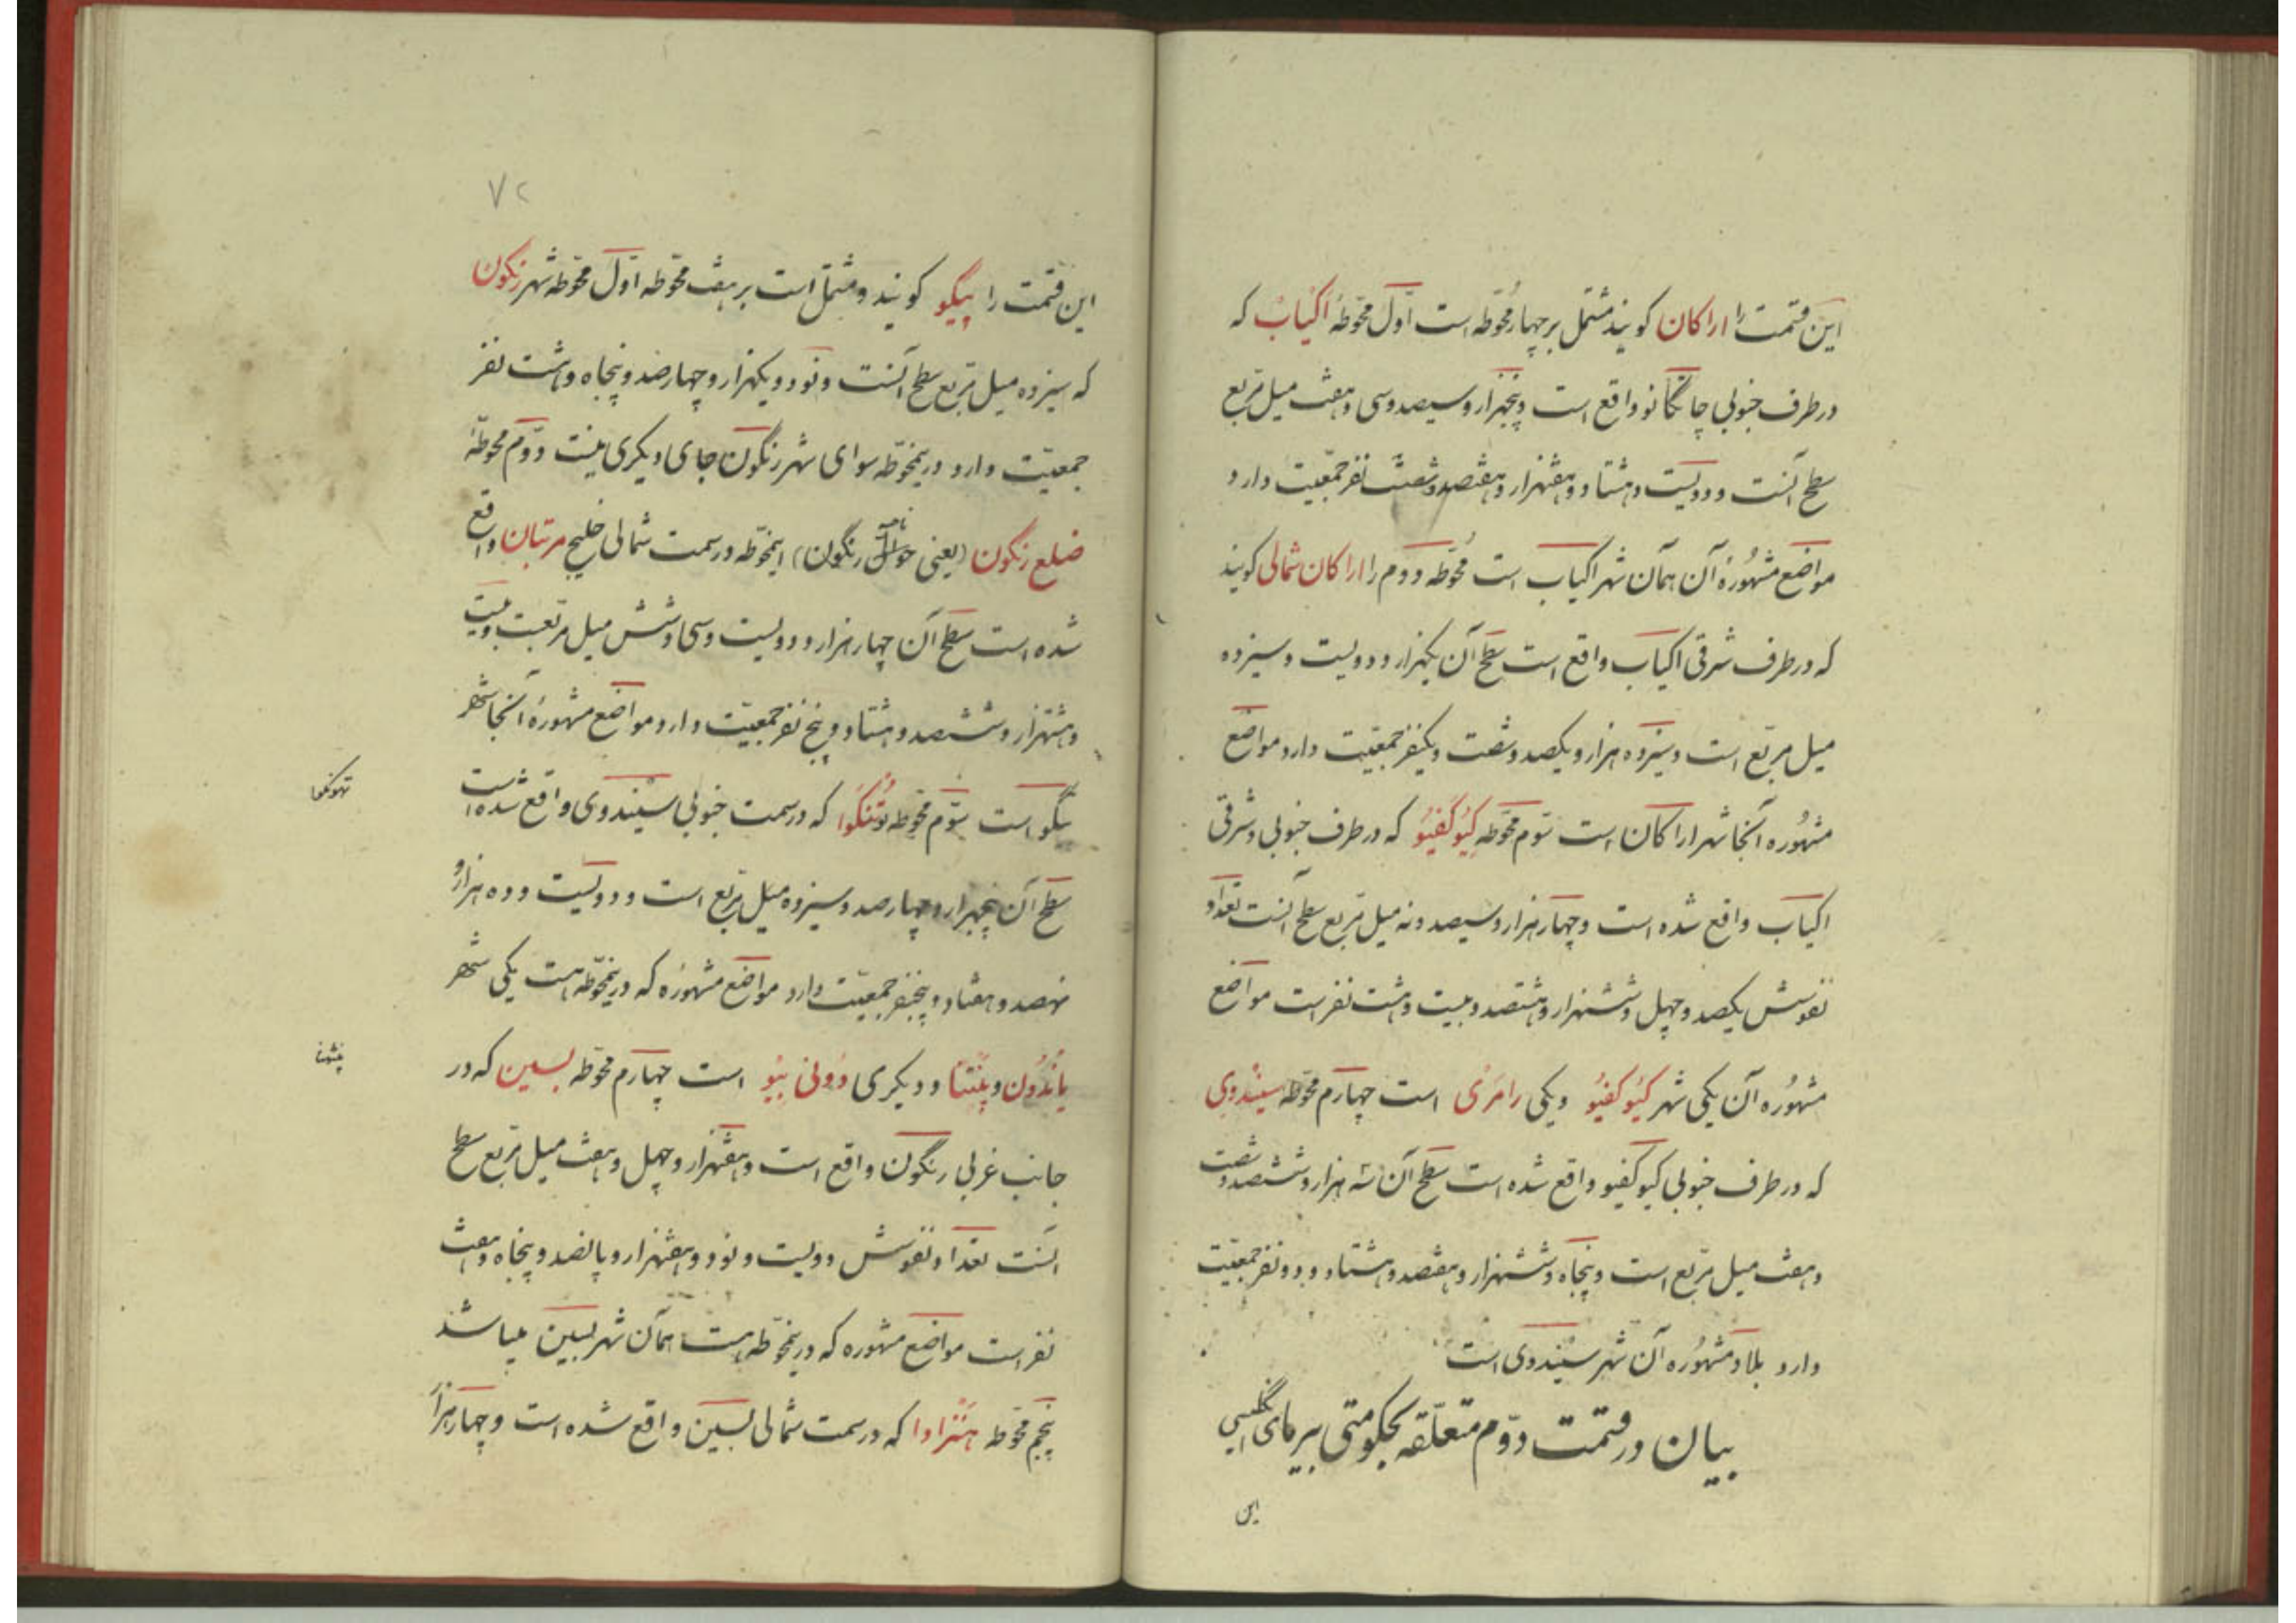 این قسمت را اراکان کویند مشتمل بر چهار محوّطه است اوّل محوّطه اکیاب که
در طرف جنوبی چاتکانو واقع است و پنجهزار و سیصد و سی و هفت میل مربّع
سطح آنست و دویست و هشتاد و هفتهزار و هفتصد و شصت نفر جمعیّت دارد
مواضع مشهُورهٔ آن همان شهر اکیاب است مُحوّطه دوم را اراکان شمالی کویند
که در طرف شرقی اکیاب واقع است سطح آن یکهزار و دویست و سیزده
میل مربّع است و سیزده هزار و یکصد و شصت و یکنفر جمعیّت دارد مواضع
مشهُوره آنجا شهر اراکان است سوّم محوّطه کیُوکفیُو که در طرف جنوبی و شرقی
اکیاب واقع شده است و چهار هزار و سیصد و نه میل مربّع سطح آنست تعداد
نفوسش یکصد و چهل و ششهزار و هشتصد و بیست و هشت نفر است مواضع
مشهُوره آن یکی شهر کیُوکفیُو و یکی رامرَی است چهارم محوّطه سیندوِی
که در طرف جنوبی کیوکفیو واقع شده است سطح آن سه هزار و ششصد و شصت
و هفت میل مربّع است و پنجاه و ششهزار و هفتصد و هشتاد و دو نفر جمعیّت
دارد بلاد مشهُوره آن شهر سیندوی است
بیان در قسمت دوّم متعلّقه بحکومتی بیرمای انگلیسی
این
٧٢
این قسمت را پیگو کویند و مشتمل است بر هفت محوّطه اوّل محوّطه شهر رنکون
که سیزده میل مربّع سطح آنست و نود و یکهزار و چهارصد و پنجاه و هشت نفر
جمعیّت دارد درینمحوّطه سوای شهر رنگون جای دیکری نیست دوّم محوطّهٔ
ضلع رنکون (یعنی حوالی رنگون) اینمحوّطه در سمت شمالی خلیج مرتبان واقع
شده است سطح آن چهار هزار و دویست و سی و شش میل مربّعست و بیست
و هشتهزار و ششصد و هشتاد و پنج نفر جمعیّت دارد و مواضع مشهورهٔ آنجا شهر
پگو است سوّم محوّطه تُنکوَا که در سمت جنوبی سیندوی واقع شده است
تهونکوا
سطح آن پنجهزار و چهارصد و سیزده میل مربّع است و دویست و ده هزار و
نهصد و هفتاد و پنجنفر جمعیّت دارد مواضع مشهوره که درینمحوّطه است یکی شهر
یاندُون و پنتنا و دیکری دُونی بیُو است چهارم محوّطه بسین که در
پنتنا
جانب غربی رنگون واقع است و هفتهزار و چهل و هفت میل مربّع سطح
آنست تعداد نفوسش دویست و نود و هفتهزار و پانصد و پنجاه و هفت
نفر است مواضع مشهوره که درینمحوّطه است همان شهر بسین میباشد
پنجم محوّطه هنزادا که در سمت شمالی بسین واقع شده است و چهار هزار